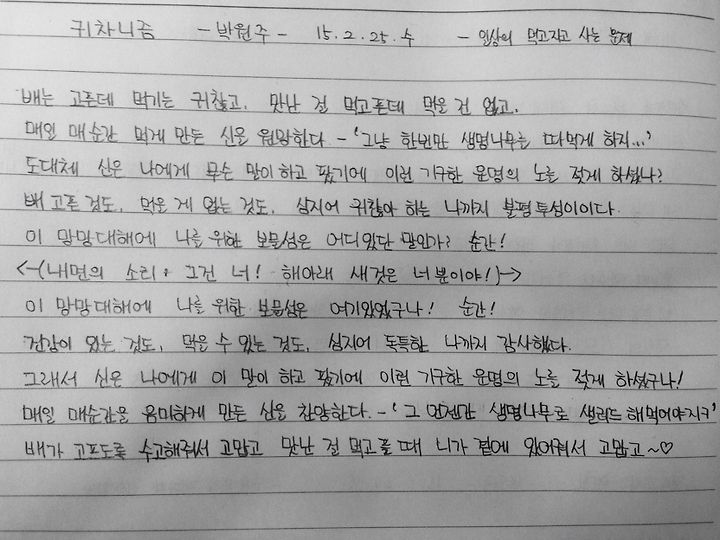 귀차니즘 -박원주- 15.2.25.수 - 인생의 먹고자고 사는 문제
배는 고픈데 먹기는 귀찮고, 맛난 걸 먹고픈데 먹을 건 없고.
매일 매순간 먹게 만든 신을 원망한다 - '그냥 한번만 생명나무를 따먹게 하지...'
도대체 신은 나에게 무슨 말이 하고 팠기에 이런 기구한 운명의 노를 젓게 하셨나?
배 고픈 것도, 먹을 게 없는 것도, 심지어 귀찮아 하는 나까지 불평투성이이다.
이 망망대해에 나를 위한 보물섬은 어디있단 말인가? 순간!
<-(내면의 소리 : 그건 너! 해아래 새것은 너뿐이야!)->
이 망망대해에 나를 위한 보물섬은 여기있었구나! 순간!
건강이 있는 것도, 먹을 수 있는 것도, 심지어 독특한 나까지 감사했다.
그래서 신은 나에게 이 말이 하고 팠기에 이런 기구한 운명의 노를 젓게 하셨구나!
매일 매순간을 음미하게 만든 신을 찬양한다. - '그 언젠간 생명나무로 샐러드 해먹어야지?'
배가 고프도록 수고해줘서 고맙고 맛난 걸 먹고플 때 니가 곁에 있어줘서 고맙고~♡